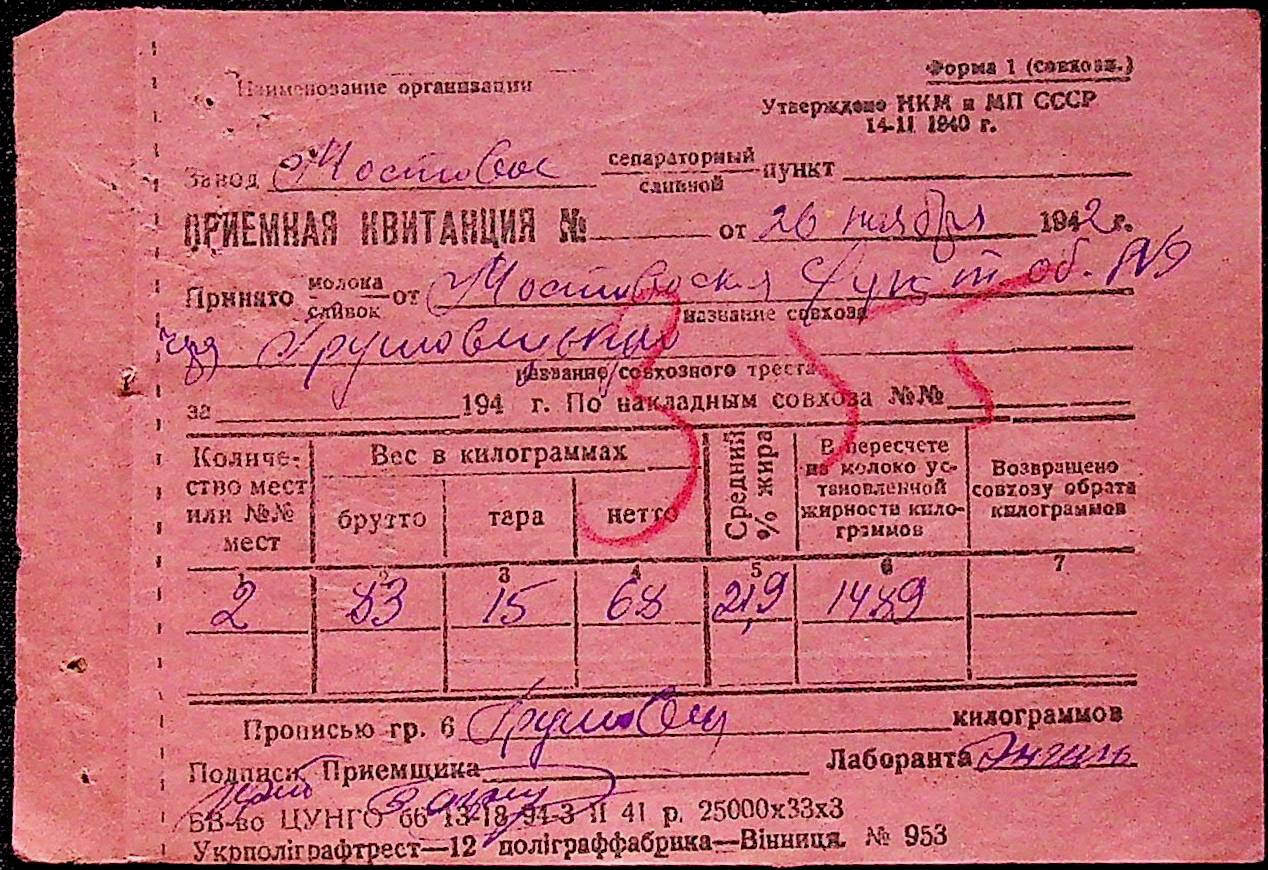 Наименование организации
Форма 1 (совхозн.)
Утверждено НКМ и МП СССР
14-II 1940 г.
Завод Мостовое сепараторный сливной пункт
ПРИЕМНАЯ КВИТАНЦИЯ № от 26 ноября 1942 г.
Принято молока сливок от Мостовская об. №9
название совхоза
через
название совхозного треста
за 194 г. По накладным совхоза №№
355
Количество мест или №№ мест
Вес в килограммах
брутто тара нетто
Средний % жира
В пересчете на молоко установленной жирности килограммов
Возвращено совхозу обрата килограммов
1 2 3 4 5 6 7
2 83 15 68 21,9 1489
Прописью гр. 6 килограммов
Подписи: Приемщика Лаборанта
БВ-во ЦУНГО 66 13-18-94-3 II 41 р. 25000х33х3
Укрполіграфтрест—12 поліграффабрика—Вінниця. № 953